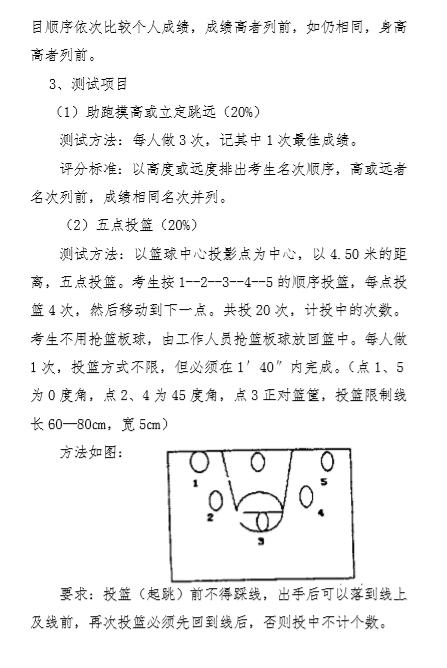 目顺序依次比较个人成绩，成绩高者列前，如仍相同，身高
高者列前。
3、测试项目
（1）助跑摸高或立定跳远（20%）
测试方法：每人做3次，记其中1次最佳成绩。
评分标准：以高度或远度排出考生名次顺序，高或远者
名次列前，成绩相同名次并列。
（2）五点投篮（20%）
测试方法：以篮球中心投影点为中心，以4.50米的距
离，五点投篮。考生按1--2--3--4--5的顺序投篮，每点投
篮4次，然后移动到下一点。共投20次，计投中的次数。
考生不用抢篮板球，由工作人员抢篮板球放回篮中。每人做
1次，投篮方式不限，但必须在1′40″内完成。（点1、5
为0度角，点2、4为45度角，点3正对篮筐，投篮限制线
长60—80cm，宽5cm）
方法如图：
1
5
2
4
3
要求：投篮（起跳）前不得踩线，出手后可以落到线上
及线前，再次投篮必须先回到线后，否则投中不计个数。